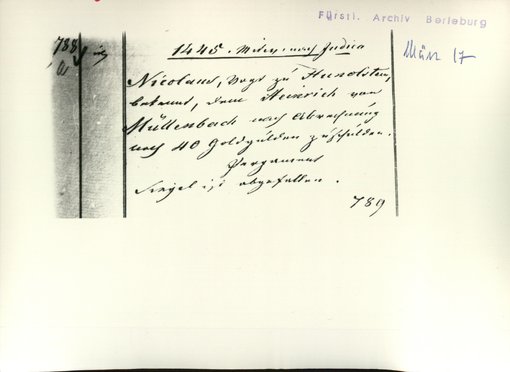 Fürstl. Archiv Berleburg
788
1445. Mitw. nach Judica
März 17
Nicolaus, Vogt zu Hunolstein,
bekennt, dem Heinrich von
Müllenbach nach Abrechnung
noch 40 Goldgülden zu schulden.
Pergament
Siegel ist abgefallen.
789